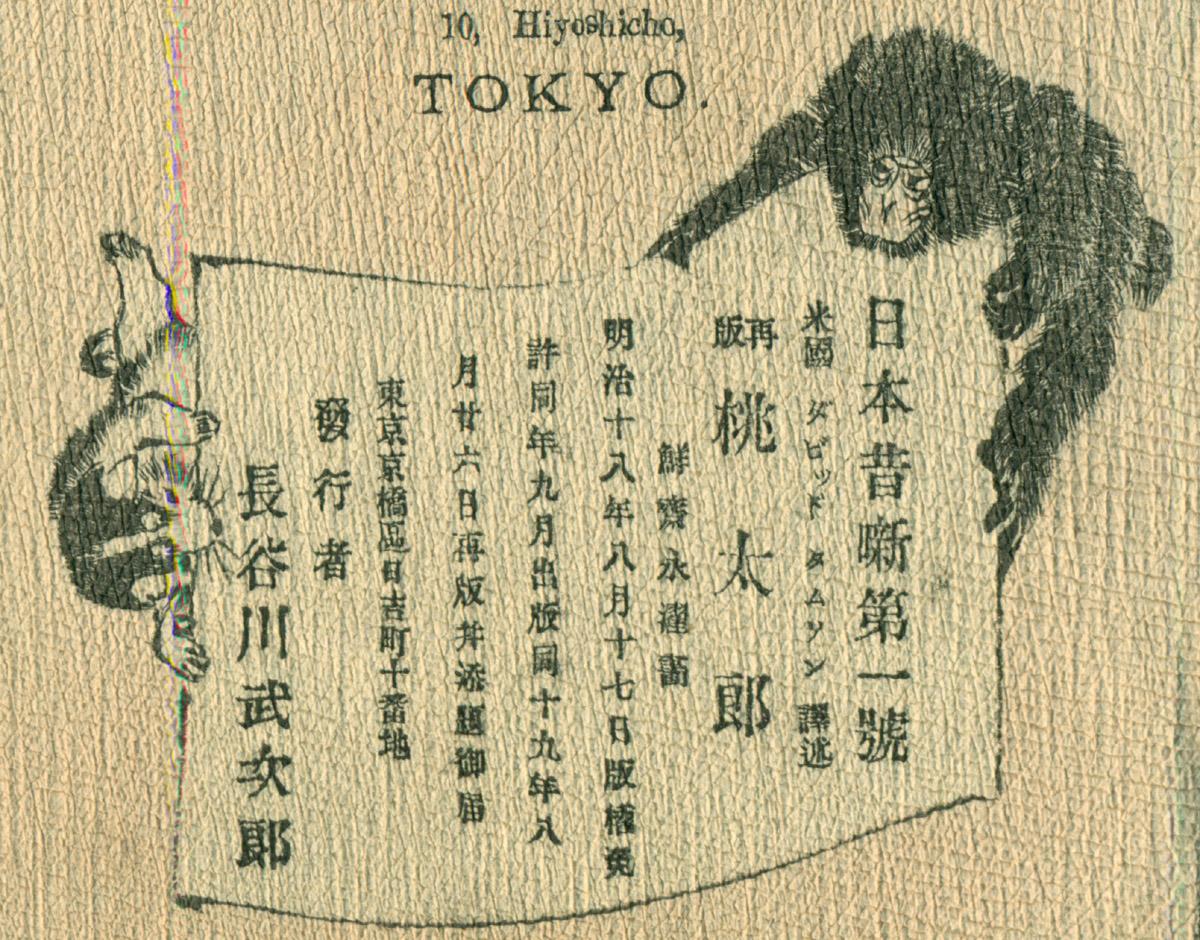 10, Hiyoshicho,
TOKYO.
日本昔噺第一號
米國 ダビッド タムソン 譯述
再版 桃太郎
鮮齋永濯畵
明治十八年八月十七日版權免
許同年九月出版同十九年八
月廿六日再版并添題御届
東京京橋區日吉町十番地
發行者
長谷川武次郎